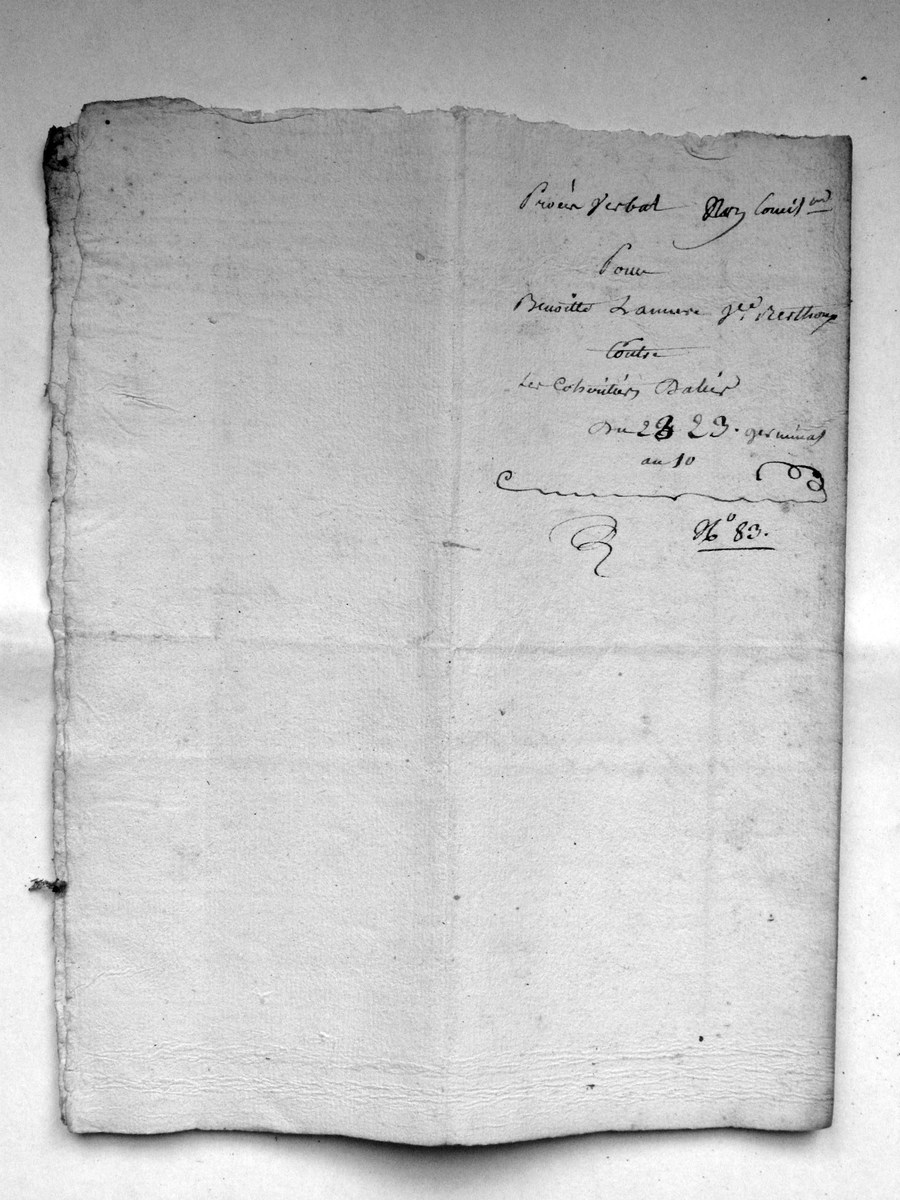 Procès Verbal Non Concil.on
Pour
Benoitte Lamure v.ve Berthoux
Contre
Les Cohéritiers
Du 23 23. germinal
an 10
N.o 83.